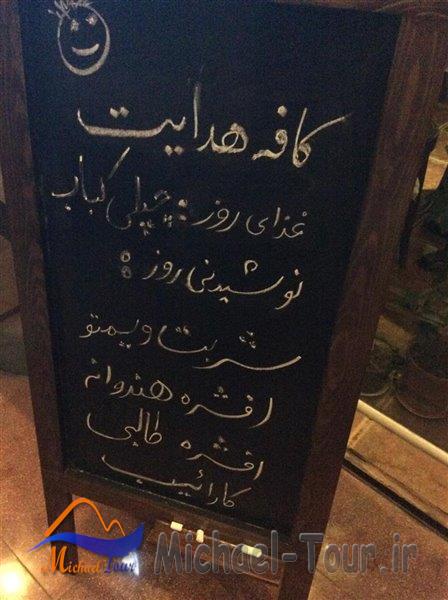 کافه هدایت
غذای روز : چپلی کباب
نوشیدنی روز :
شربت ویمتو
افشره هندوانه
افشره طالبی
کارائیب
Michael Tour
Michael-Tour.ir